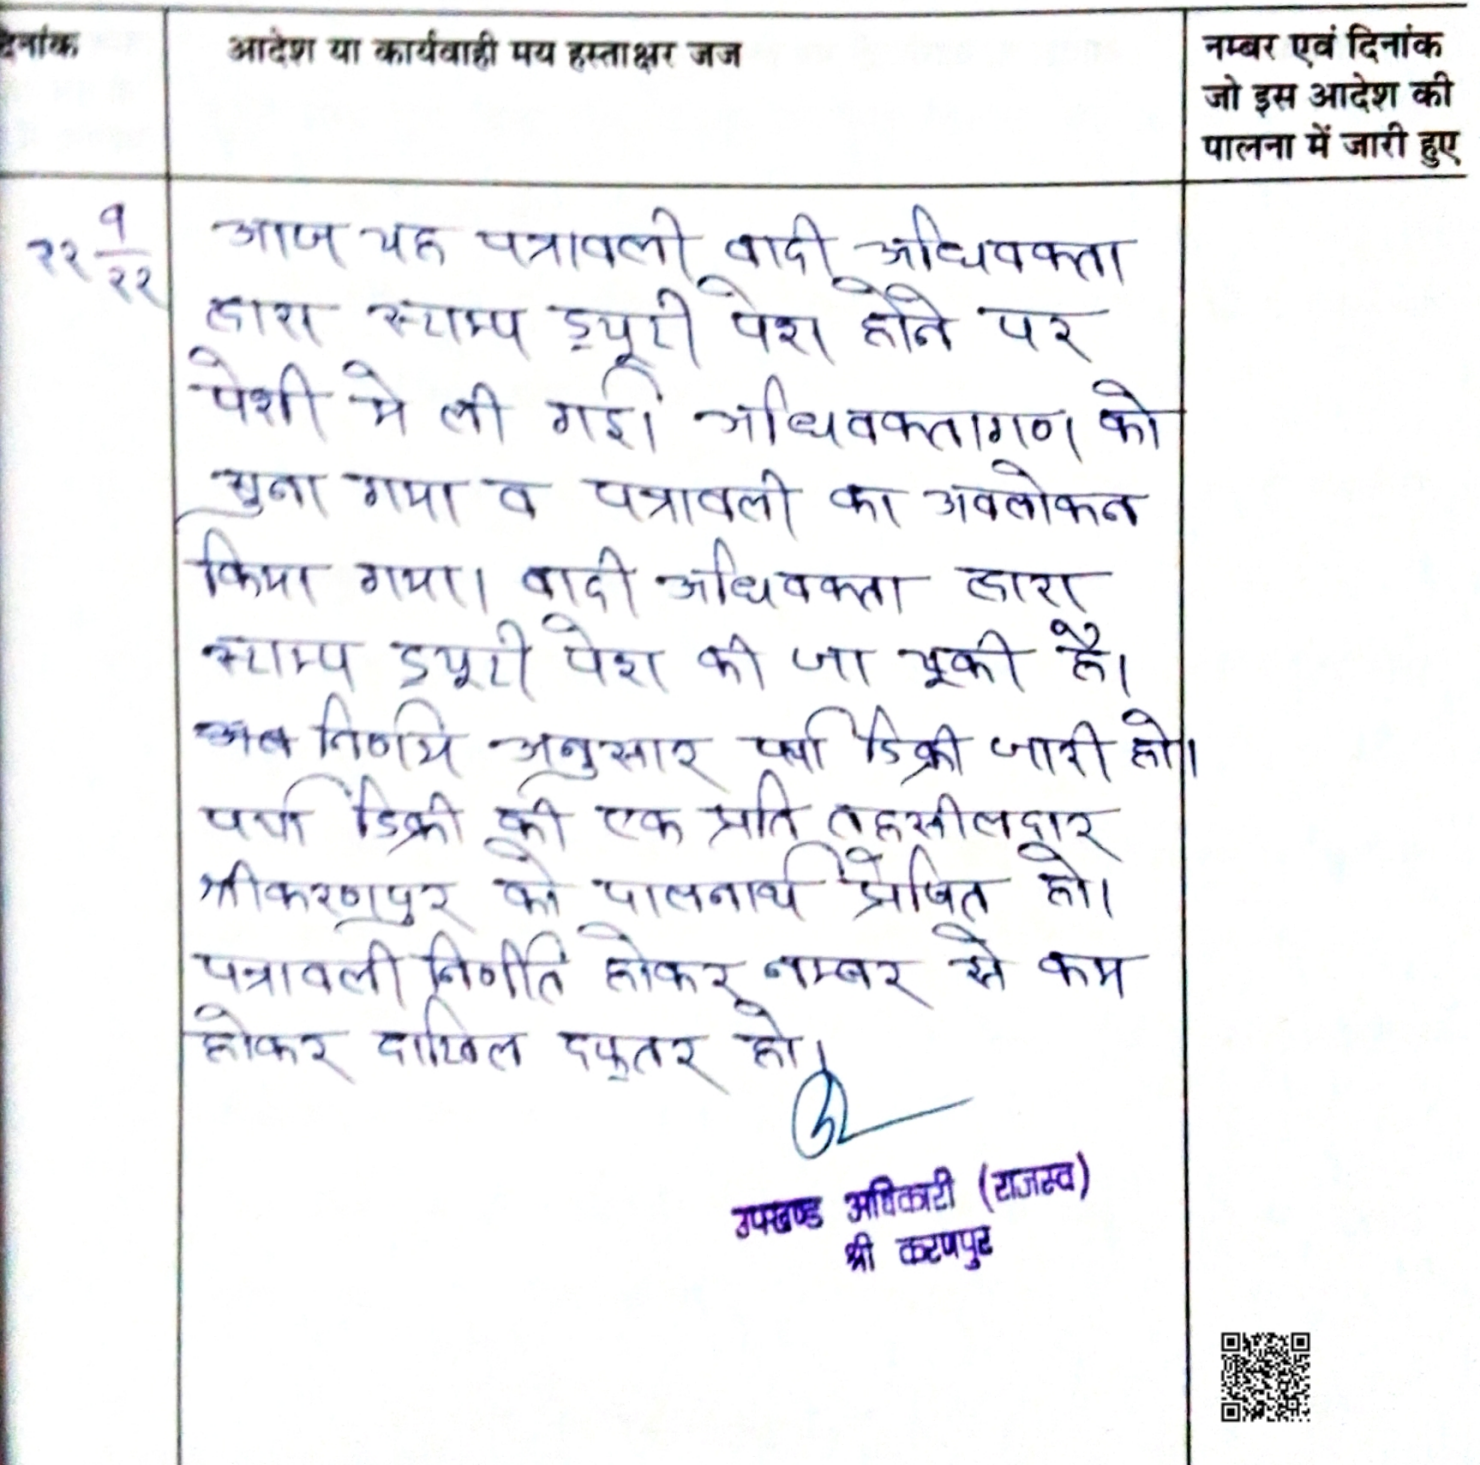 दिनांक
आदेश या कार्यवाही मय हस्ताक्षर जज
नम्बर एवं दिनांक
जो इस आदेश की
पालना में जारी हुए
२२ ९/२२
आज यह पत्रावली वादी अधिवक्ता
द्वारा स्टाम्प ड्यूटी पेश होने पर
पेशी मे ली गई। अधिवक्तागण को
सुना गया व पत्रावली का अवलोकन
किया गया। वादी अधिवक्ता द्वारा
स्टाम्प ड्यूटी पेश की जा चूकी है।
अतः निर्णय अनुसार पर्चा डिक्री जारी हो।
पर्चा डिक्री की एक प्रति तहसीलदार
श्रीकरणपुर को पालनार्थ प्रेषित हो।
पत्रावली निर्णीत होकर नम्बर से कम
होकर दाखिल दफ़्तर हो।
उपखण्ड अधिकारी (राजस्व)
श्री करणपुर